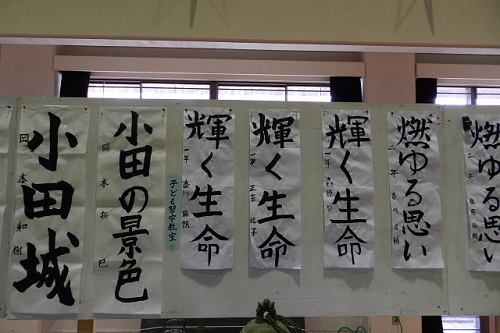 小田城
岡本和樹
小田の景色
岡本拓巳
子ども習字教室
輝く生命
輝く生命
輝く生命
燃ゆる思い
燃ゆる思い